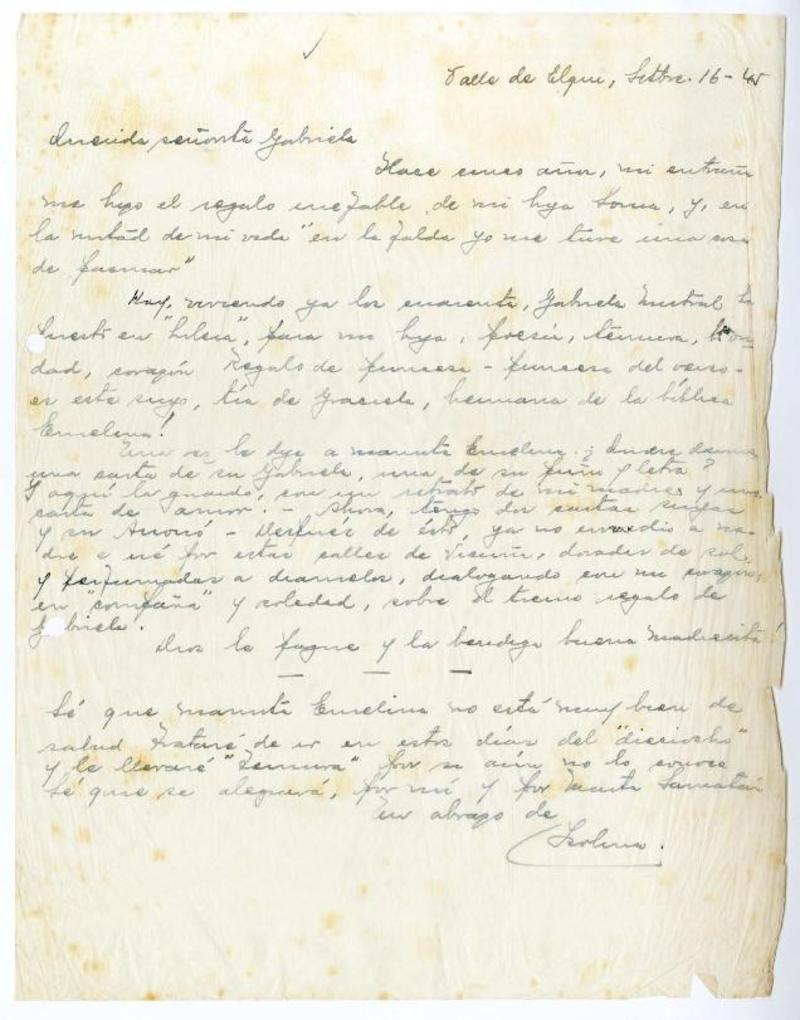 Valle de Elqui, Setbre. 16-45
Querida señorita Gabriela
Hace cinco años, mi entraña
me hizo el regalo inefable de mi hija Sonia, y, en
la mitad de mi vida "en la falda yo me tuve una cosa
de pasmar"
Hoy, viviendo ya los cuarenta, Gabriela Mistral ha
puesto en , para mi hija, poesía, ternura, bon-
dad, corazón Regalo de princesa - princesa del verso -
es este suyo, tía de Graciela, hermana de la bíblica
Emelina!
Una vez le dije a mamita Emelina: ¿Quiere darme
una carta de su Gabriela, una de su puño y letra?
Y aquí la guardo, con un retrato de mi madre y una
carta de amor. - Ahora, tengo dos cartas suyas
y su - Después de ésto, ya no envidio a na-
die e iré por estas calles de Vicuña, doradas de sol,
y perfumadas a diamelos, dialogando con mi corazón,
en "compaña" y soledad, sobre el tierno regalo de
Gabriela.
Dios le pague y la bendiga buena madrecita!
Sé que mamita Emelina no está muy bien de
salud Trataré de ir en estos días del "dieciocho"
y le llevaré "Ternura" por si aún no lo conoce
Sé que se alegrará, por mí y por Marta Samatán
Un abrazo de
Isolina.